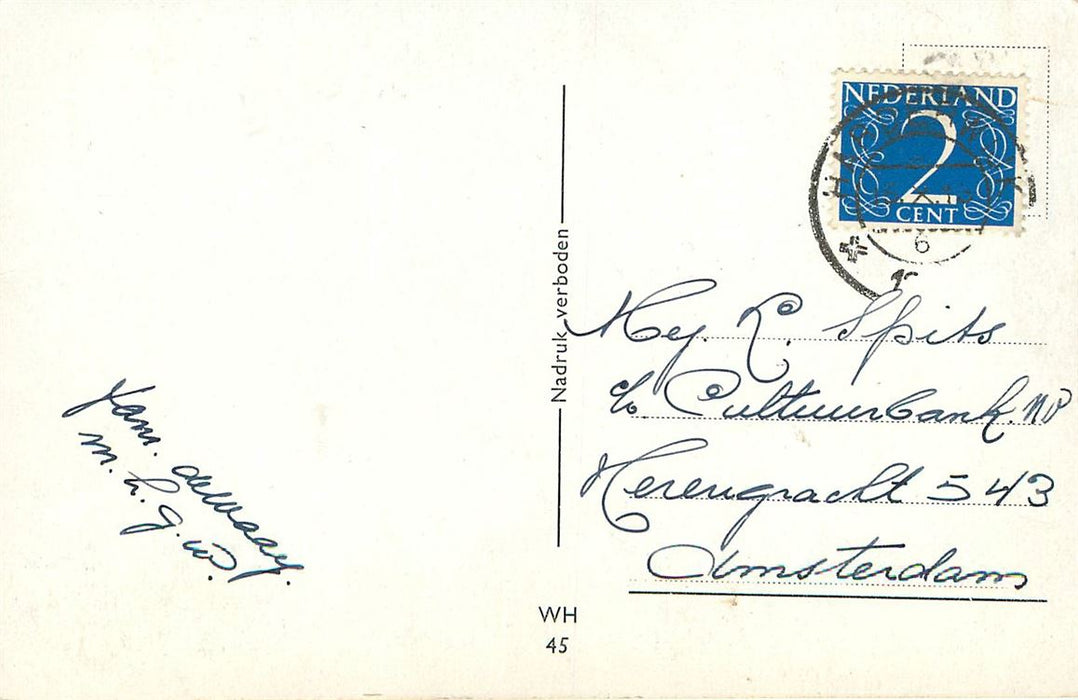 NEDERLAND
2
CENT
6
Nadruk verboden
Mej. R. Spits
c/o Cultuurbank. NV
Herengracht 543
Amsterdam
Fam.
m. h. g. w.
WH
45